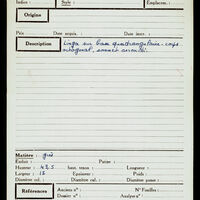 Indice : Style : Emplacem. :
Origine
Prix Date acquis. : Date invent. :
Description Linga sur base quadrangulaire - corps
octogonal, sommet arrondi.
Matière : grès
Hauteur : 42.5 haut. tenon : Longueur :
Largeur : 15 Epaisseur : Poids :
Diamètre col. : Diamètre panse :
Références Anciens n° : N° Fouilles :
Dossier n° : Analyse n° :